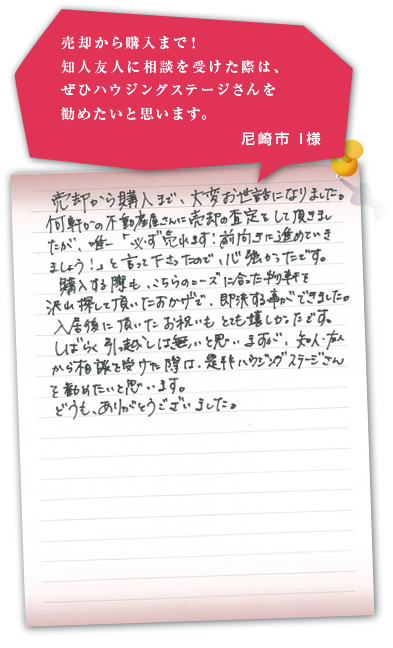 売却から購入まで！
知人友人に相談を受けた際は、
ぜひハウジングステージさんを
勧めたいと思います。
尼崎市 I様
売却から購入まで、大変お世話になりました。
何軒かの不動産屋さんに売却の査定をして頂きまし
たが、唯一「必ず売れます！前向きに進めていき
ましょう！」と言って下さったので、心強かったです。
購入する際も、こちらのニーズに合った物件を
沢山探して頂いたおかげで、即決する事ができました。
入居後に頂いたお祝いもとても嬉しかったです。
しばらく引っ越しは無いと思いますが、知人・友人
から相談を受けた際は、是非ハウジングステージさん
を勧めたいと思います。
どうも、ありがとうございました。